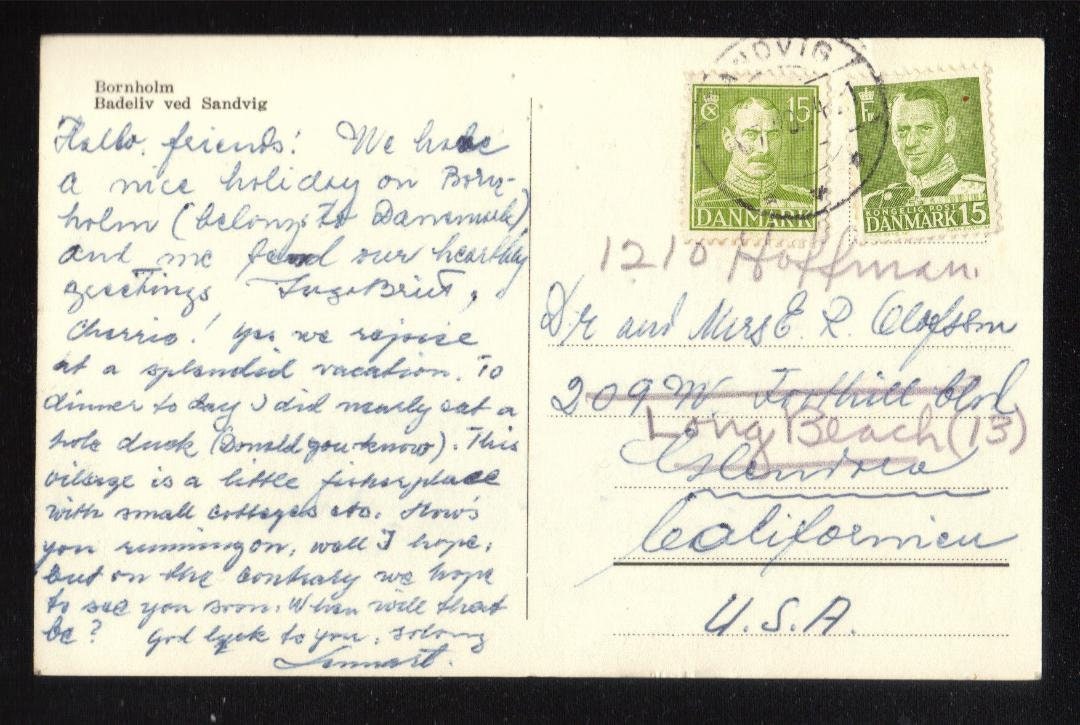 Bornholm
Badeliv ved Sandvig
Hallo, friends! We have
a nice holiday on Born-
holm (belongs to Danemark)
and we send our hearthly
greetings Inga Brit,
Cherrio! Yes we rejoise
at a splendid vacation. To
dinner to day I did nearly eat a
hole duck (Donald you know). This
village is a little fisherplace
with small cotteges etc. How's
you running on, well I hope,
but on the contrary we hope
to see you soon. When will that
be? God lyck to you, solong
Lennart.
NDVIG
15
DANMARK
KONGELIG POST
DANMARK 15
1210 Hoffman.
Dr and Mrs E. R. Olofsson
209 W Foothill blvd
Long Beach (13)
Glendora
Californien
U.S.A.